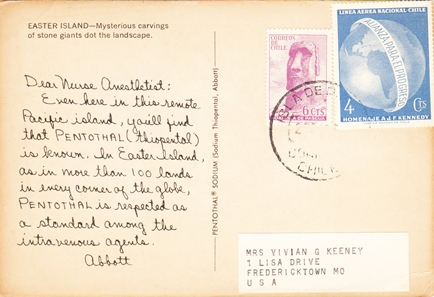 EASTER ISLAND—Mysterious carvings
of stone giants dot the landscape.
Dear Nurse Anesthetist:
Even here in this remote
Pacific island, you'll find
that PENTOTHAL (thiopental)
is known. In Easter Island,
as in more than 100 lands
in every corner of the globe,
PENTOTHAL is respected as
a standard among the
intravenous agents.
Abbott
PENTOTHAL® SODIUM (Sodium Thiopental, Abbott)
CORREOS DE
CHILE
6 CTS
ISLA DE PASCUA
LINEA AEREA NACIONAL CHILE
ALIANZA PARA EL PROGRESO
4 Cts
HOMENAJE A J.F. KENNEDY
ISLA DE
CHILE
MRS VIVIAN G KEENEY
1 LISA DRIVE
FREDERICKTOWN MO
U S A